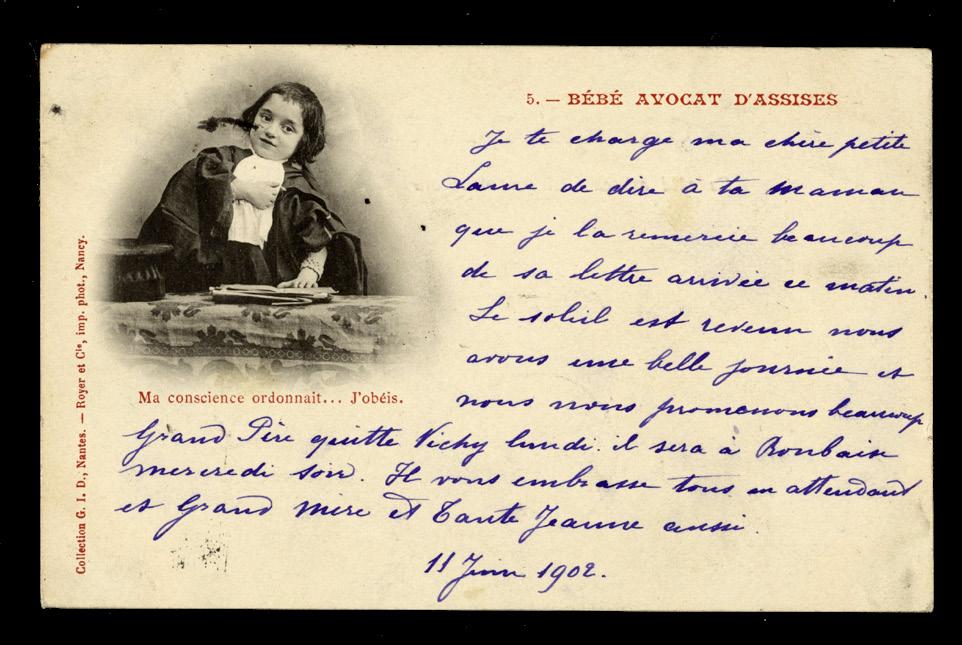 5. — BÉBÉ AVOCAT D'ASSISES
Je te charge ma chère petite
de dire à ta maman
que je la remercie beaucoup
de sa lettre arrivée ce matin.
Le soleil est revenu nous
avons une belle journée et
nous nous promenons beaucoup
Ma conscience ordonnait... J'obéis.
Grand Père quitte Vichy lundi. il sera à Roubaix
mercredi soir. Il vous embrasse tous en attendant
et Grand Mère et Tante Jeanne aussi.
11 Juin 1902.
Collection G. I. D., Nantes. — Royer et Cie, imp. phot., Nancy.